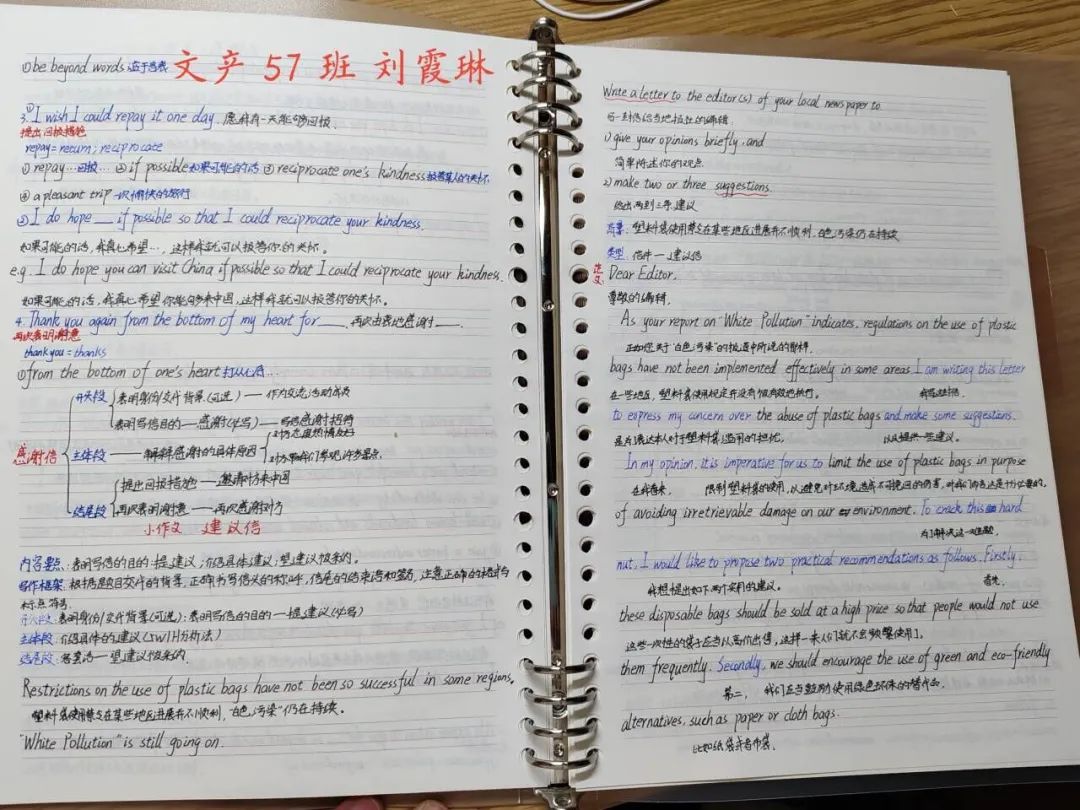 ①be beyond words 溢于言表
文产57班 刘霞琳
3.①I wish I could repay it one day. 愿我有一天能够回报.
提出回报措施
repay=return; reciprocate
①repay…回报… ②if possible如果可能的话 ③reciprocate one's kindness报答某人的关怀
④a pleasant trip 一次愉快的旅行
②I do hope ___ if possible so that I could reciprocate your kindness.
如果可能的话,我真心希望…,这样我就可以报答你的关怀。
e.g. I do hope you can visit China if possible so that I could reciprocate your kindness.
如果可能的话,我真心希望你能够来中国,这样我就可以报答你的关怀。
4. Thank you again from the bottom of my heart for___. 再次由衷地感谢___.
再次表明谢意
thank you=thanks
①from the bottom of one's heart 打从心底…
感谢信
开头段
表明身份/交代背景(可选)—作为交流活动成员
表明写信目的—感谢(必写)—写信感谢招待
主体段——解释感谢的具体原因
对方态度热情友好
对方带我们参观许多景点.
结尾段
提出回报措施—邀请对方来中国
再次表明谢意—再次感谢对方
小作文 建议信
内容要点:表明写信的目的:提建议;介绍具体建议;望建议被采纳.
写作框架:根据题目交代的背景,正确书写信头的称呼,信尾的结束语和签名,注意正确的格式与
标点符号.
开头段:表明身份/交代背景(可选);表明写信的目的—提建议(必写)
主体段:介绍具体的建议(5W1H分析法)
结尾段:客套话—望建议被采纳.
Restrictions on the use of plastic bags have not been so successful in some regions.
塑料袋使用禁令在某些地区进展并不顺利,"白色污染"仍在持续。
"White Pollution" is still going on.
Write a letter to the editor(s) of your local newspaper to
写一封信给当地报社的编辑.
1)give your opinions briefly, and
简单阐述你的观点.
2)make two or three suggestions.
给出两到三条建议
背景:塑料袋使用禁令在某些地区进展并不顺利,白色污染仍在持续
类型:信件—建议信
范文:
Dear Editor,
尊敬的编辑,
As your report on "White Pollution" indicates, regulations on the use of plastic
正如您关于"白色污染"的报道中所说的那样,
bags have not been implemented effectively in some areas. I am writing this letter
在一些地区,塑料袋使用规定并没有很有效地执行. 我写这封信
to express my concern over the abuse of plastic bags and make some suggestions.
是为表达本人对于塑料袋滥用的担忧, 以及提供一些建议。
In my opinion, it is imperative for us to limit the use of plastic bags in purpose
在我看来, 限制塑料袋的使用,以避免对环境造成不可挽回的伤害,对我们而言是十分必要的.
of avoiding irretrievable damage on our environment. To crack this hard
为了解决这一难题,
nut, I would like to propose two practical recommendations as follows. Firstly,
我想提出如下两个实用的建议。 首先,
these disposable bags should be sold at a high price so that people would not use
这些一次性的袋子应当以高价出售,这样一来人们就不会频繁使用了。
them frequently. Secondly, we should encourage the use of green and eco-friendly
第二, 我们应当鼓励使用绿色环保的替代品.
alternatives, such as paper or cloth bags.
比如纸袋或者布袋。